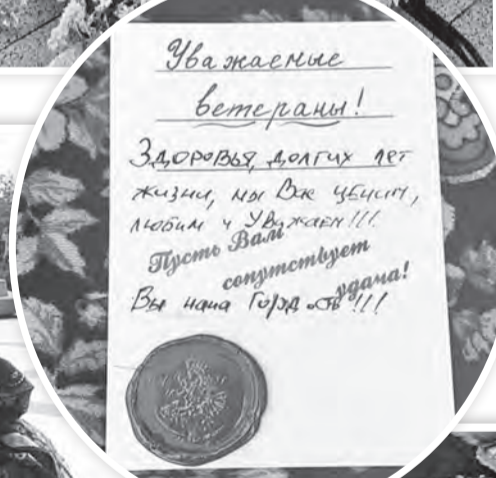 Уважаемые
ветераны!
Здоровья, долгих лет
жизни, мы Вас ценим,
любим и Уважаем!!!
Пусть Вам
сопутствует
удача!
Вы наша Гордость!!!